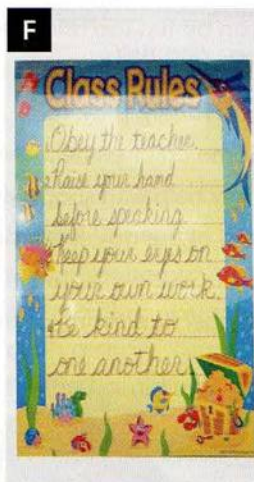 F
Class Rules
Obey the teacher.
Raise your hand
before speaking
Keep your eyes on
your own work.
Be kind to
one another.